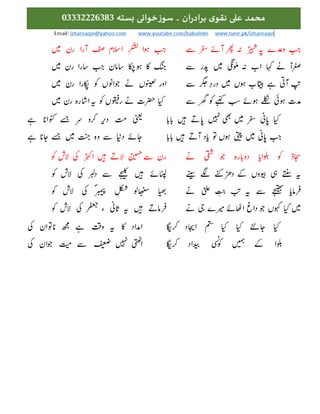 محمد علی نقوی برادران ۔ سوزخوانی بستہ 03332226383
Email: izharnaqvi@yahoo.com www.youtube.com/babulrilm www.tune.pk/izharnaqvi
جب وعدے پہ شبیرؑ نہ پھر آئے سفر سے جب ہوا لشکرِ اسلام صف آرا رن میں
صغراؑ نے کہا اب نہ ملوگی پدر سے جنگ کا ہوچکا سامان جب سارا رن میں
تپ آتی ہے بیتاب ہوں میں دردِ جگر سے اور لعینوں نے جوانوں کو پکارا رن میں
مدت ہوئی نکلے ہوئے سب کنبے کو گھر سے کیا حضرت نے رفیقوں کو یہ اشارہ رن میں
کیا پانی سفر میں بھی نہیں پاتے ہیں بابا یعنی مت دیر کرو سر جسے کٹوانا ہے
جب پانی میں پیتی ہوں تو یاد آتے ہیں بابا جائے دنیا سے وہ جنت میں جسے جانا ہے
سجادؑ کو بلوایا دوبارہ جو شقی نے رن سے حسینؑ لاتے ہیں اکبرؑ کی لاش کو
یہ سنتے ہی بیووں کے دل دھڑکنے لگے سینے لپٹائے ہیں کلیجے سے دلبر کی لاش کو
فرمایا بھتیجے سے یہ تب بنتِ علیؑ نے بھیا سنبھالو شکلِ پیمبرؐ کی لاش کو
کیا میں کہوں جو داغ اٹھائے میرے جی نے فرماتے ہیں یہ ثانیِ جعفرؑ کی لاش کو
کیا جانئے کیا کیا ستم ایجاد کریگا امداد کا یہ وقت ہے مجھ ناتوان کی
بلوا کے ہمیں کونسی بیداد کریگا اٹھتی نہیں ضعیف سے میت جوان کی